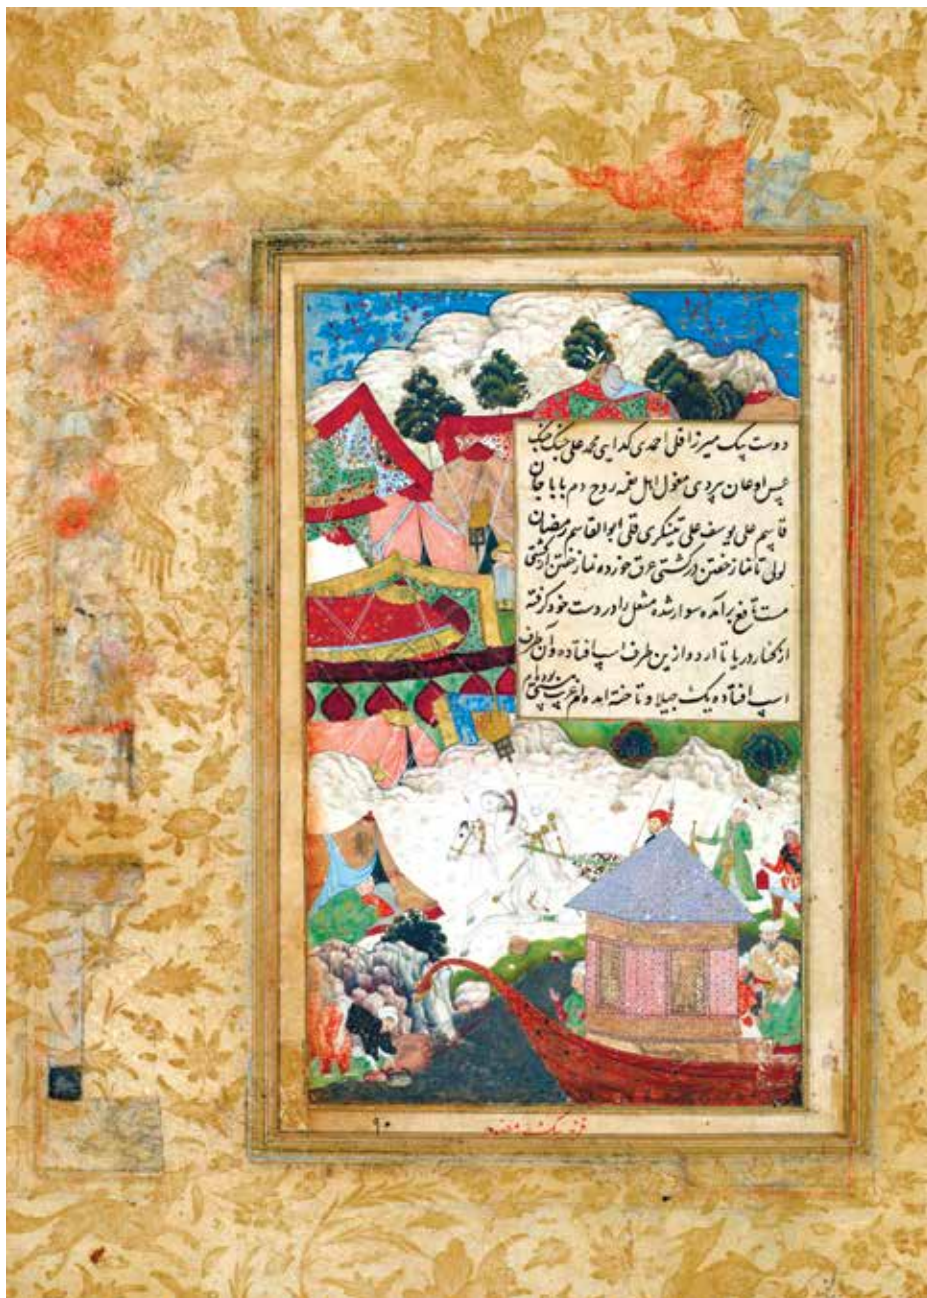 دوست بیک میرزا قلی احمدی کدایی محمد علی جنک جنک
عپس اوعان بردی مغول اهل نغمه روح دم بابا جان
قاپم علی یوسف علی تینکری قلی ابوالقاسم رمضان
لولی تا نماز خفتن در کشتی عرق خورده نماز خفتن از کشتی
مست تافع برآمده سوار شده مشعل را در دست خود کرفته
از کنار دریا تا اردو ازین طرف اسپ افتاده و آن طرف
اسپ افتاده یک جیلاو تاخته آمده ام غریب مستی بوده
۹۰